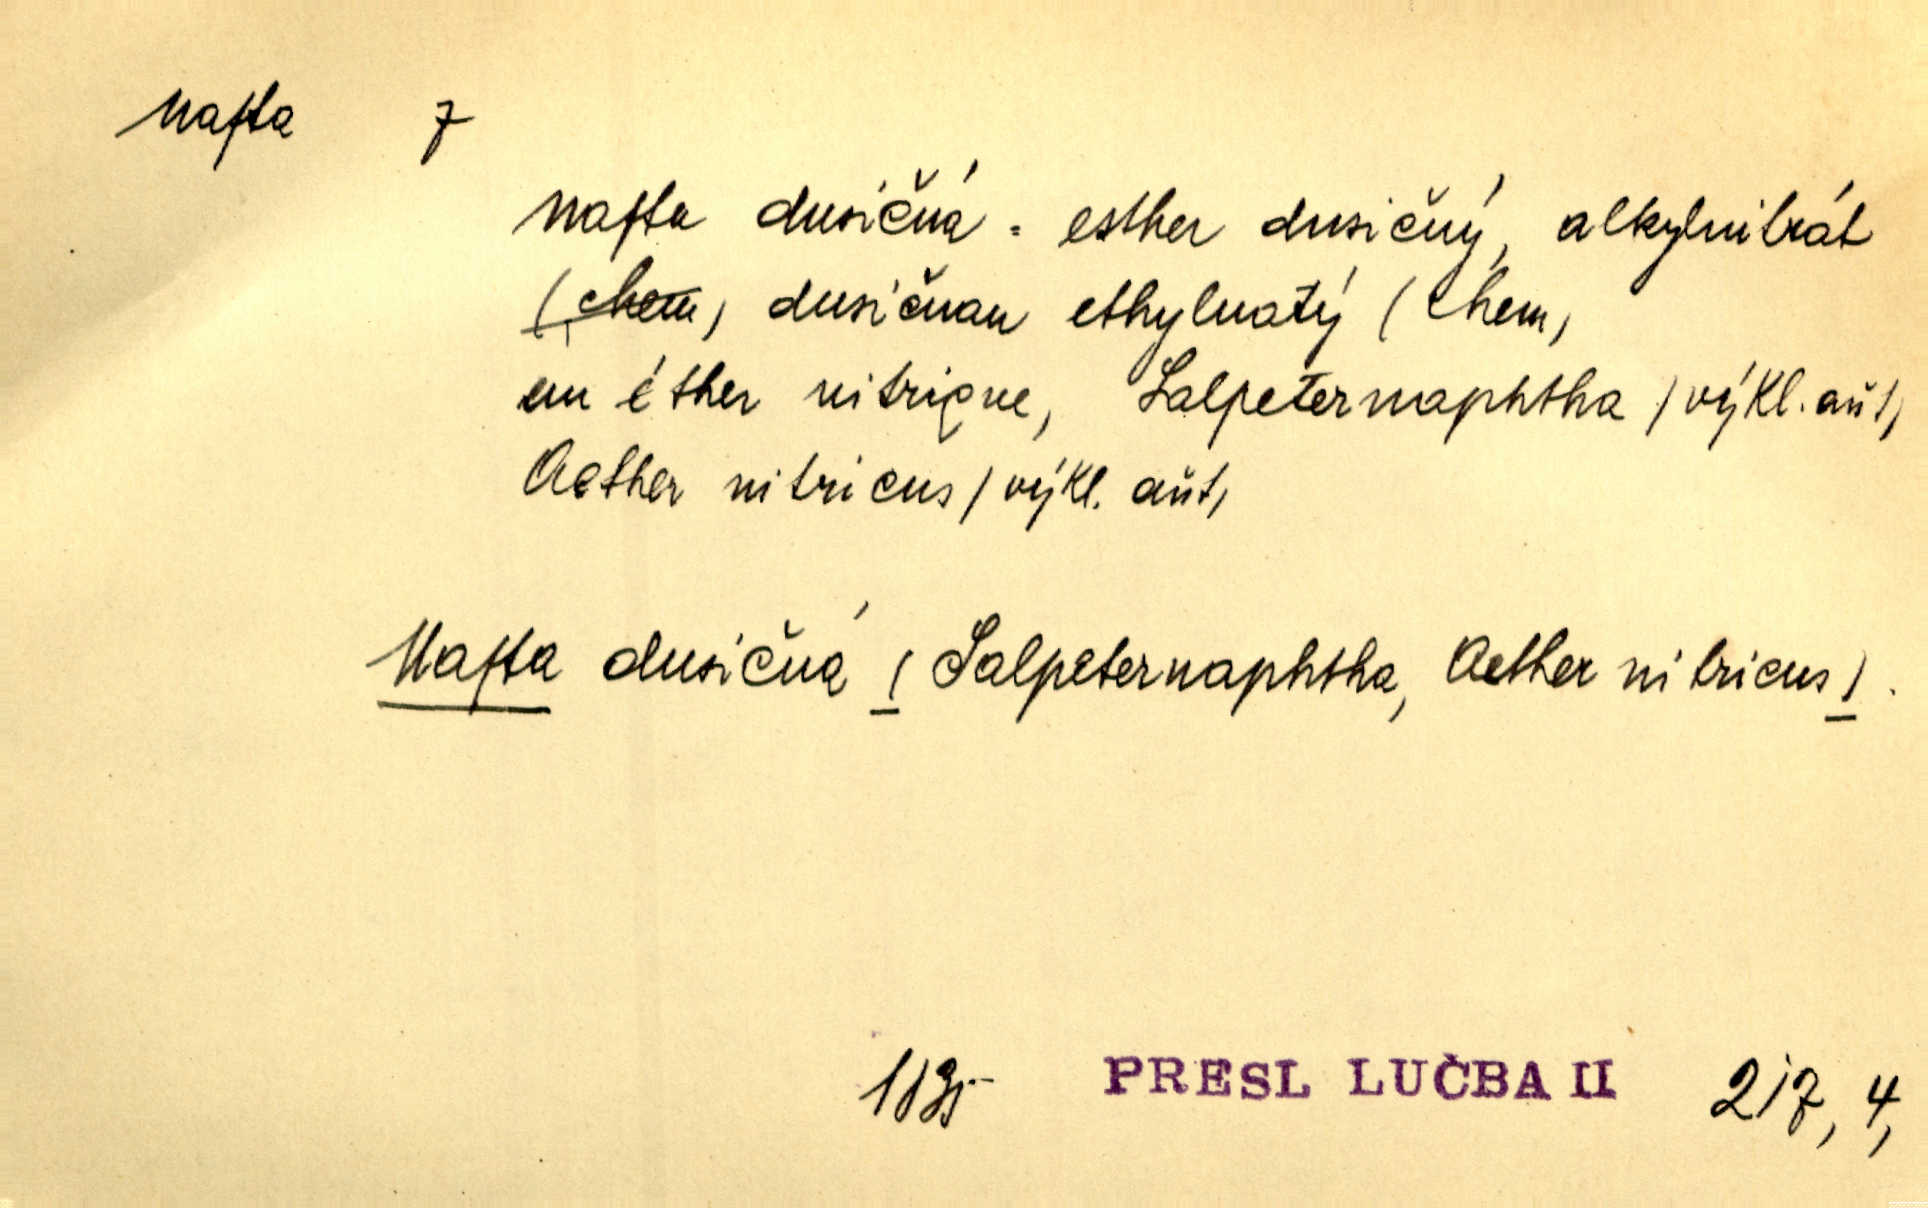 nafta f
nafta dusičná = esther dusičný, alkylnitrát
(chem) dusičnan ethylnatý (chem)
éther nitrique, Salpeternaphtha (výkl. aut)
Aether nitricus (výkl. aut)
Nafta dusičná (Salpeternaphtha, Aether nitricus).
1835 PRESL LUČBA II 217, 4,